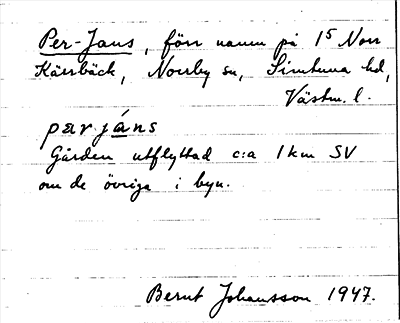 Per-Jans, förr namn på 1⁵ Norr
Kärrbäck, Norrby sn, Simtuna hd,
Västm. l.
pær jáns
Gården utflyttad c:a 1 km SV
om de övriga i byn.
Bernt Johansson 1947.